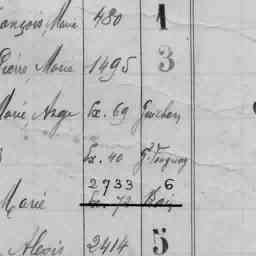 François Marie 480 1
Pierre Marie 1495 3
Marie Ange Ex. 69 Guichen
Ex. 40
2733 6
Marie Ex. 72 Bain
Alexis 2414 5